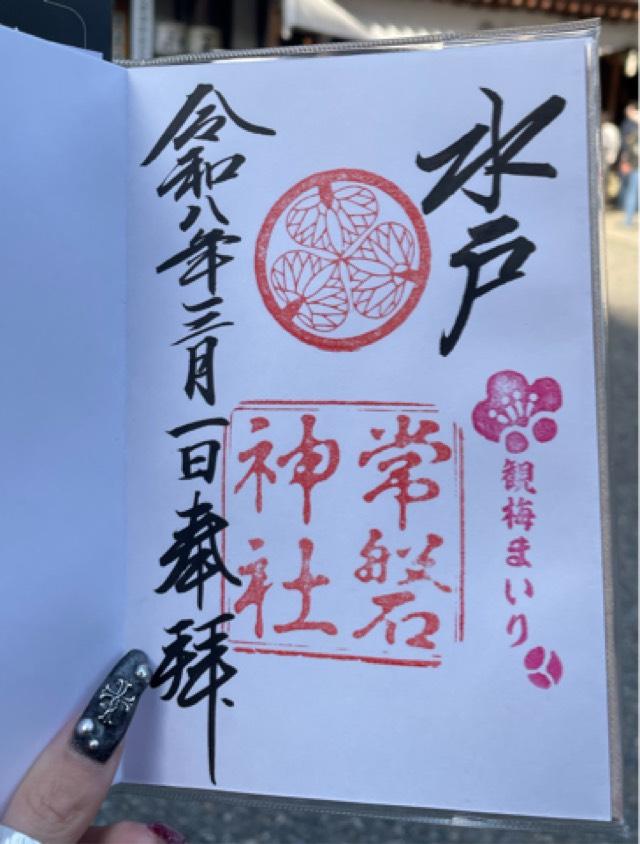 水戸
観梅まいり
常磐
神社
令和八年三月一日奉拝